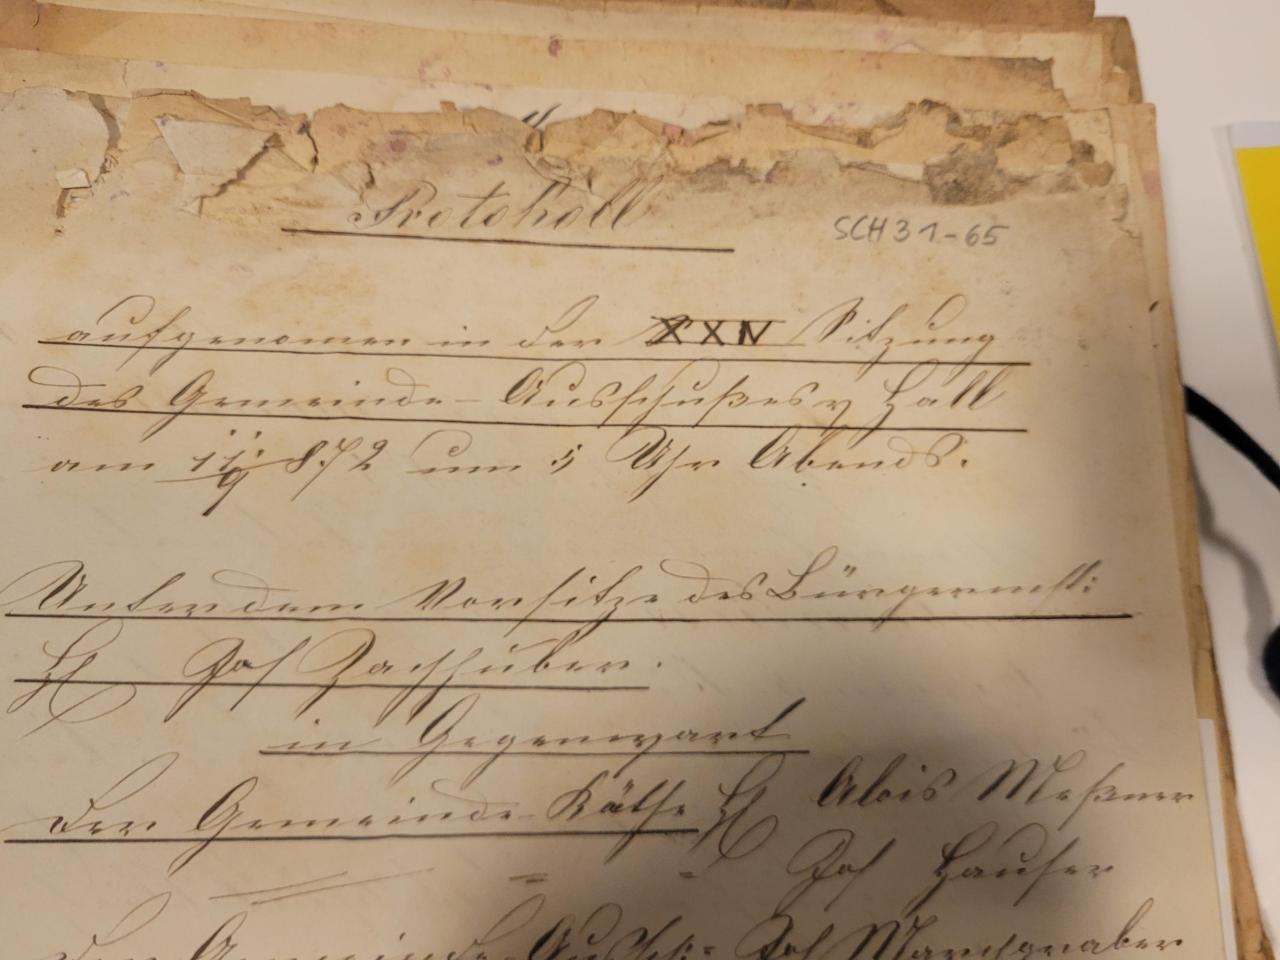 Protokoll
SCH 31-65
aufgenomen in der XXIV Sitzung
des Gemeinde-Ausschußes v Hall
am 11/9 872 um 5 Uhr Abends.
Unter dem Vorsitze des Bürgermst:
H Jos Zachhuber.
in Gegenwart
der Gemeinde-Räthe H Alois Meßner
Jos Hauser
der Gemeinde-Aussch:= Jos Marchgraber